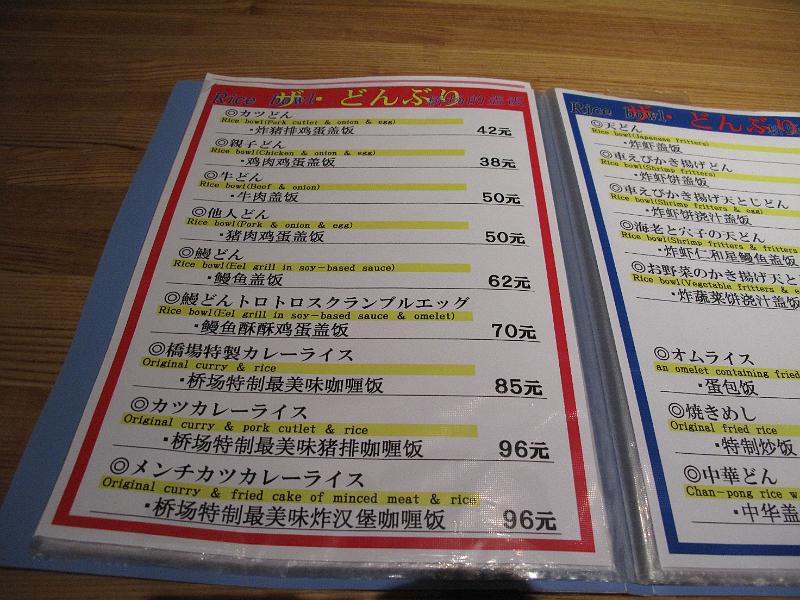 Rice bowl ザ・どんぶり
◎カツどん
Rice bowl(Pork cutlet & onion & egg)
・炸猪排鸡蛋盖饭 42元
◎親子どん
Rice bowl(Chicken & onion & egg)
・鸡肉鸡蛋盖饭 38元
◎牛どん
Rice bowl(Beef & onion)
・牛肉盖饭 50元
◎他人どん
Rice bowl(Pork & onion & egg)
・猪肉鸡蛋盖饭 50元
◎鰻どん
Rice bowl(Eel grill in soy-based sauce)
・鳗鱼盖饭 62元
◎鰻どんトロトロスクランブルエッグ
Rice bowl(Eel grill in soy-based sauce & omelet)
・鳗鱼酥酥鸡蛋盖饭 70元
◎橋場特製カレーライス
Original curry & rice
・桥场特制最美味咖喱饭 85元
◎カツカレーライス
Original curry & pork cutlet & rice
・桥场特制最美味猪排咖喱饭 96元
◎メンチカツカレーライス
Original curry & fried cake of minced meat & rice
・桥场特制最美味炸汉堡咖喱饭 96元
Rice bowl ザ・どんぶり
◎天どん
Rice bowl(Japanese fritters)
・炸虾盖饭
◎車えびかき揚げどん
Rice bowl(Shrimp fritters)
・炸虾饼盖饭
◎車えびかき揚げ天とじどん
Rice bowl(Shrimp fritters & egg)
・炸虾饼浇汁盖饭
◎海老と穴子の天どん
Rice bowl(Shrimp fritters & fritters
・炸虾仁和星鳗鱼盖饭
◎お野菜のかき揚げ天と
Rice bowl(Vegetable fritters & e
・炸蔬菜饼浇汁盖饭
◎オムライス
an omelet containing fried
・蛋包饭
◎焼きめし
Original fried rice
・特制炒饭
◎中華どん
Chan-pong rice w
・中华盖